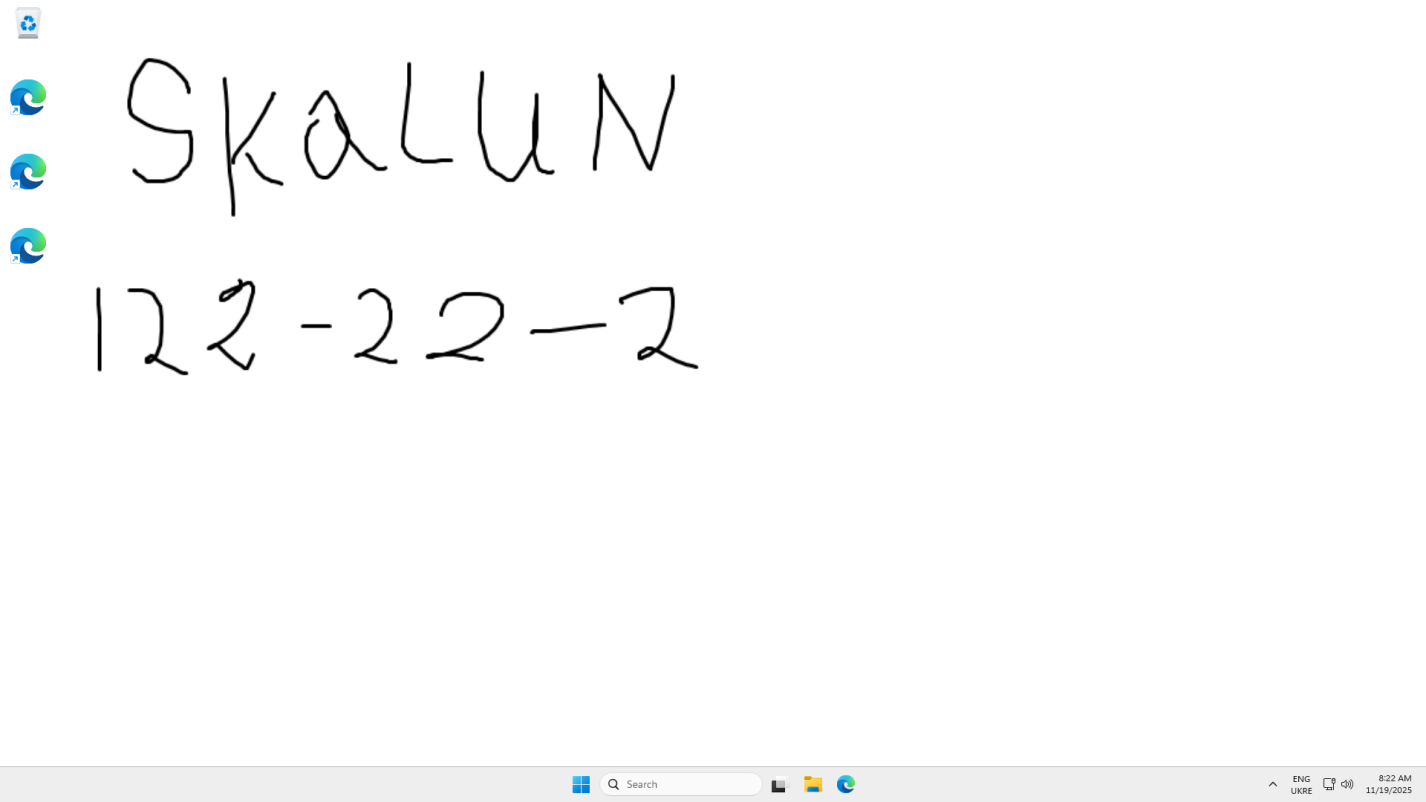 SKaLUN
122-22-2
Search
ENG
UKRE
8:22 AM
11/19/2025